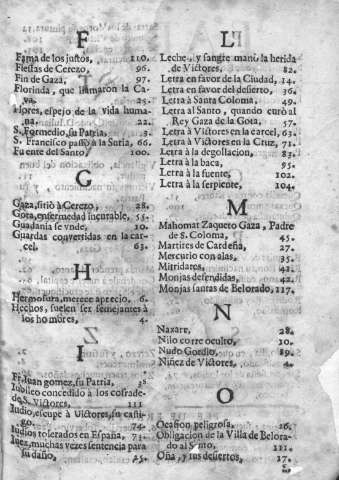 F
Fama de los justos, 110.
Fiestas de Cerezo, 96.
Fin de Gaza, 97.
Florinda, que llamaron la Ca
va. 25.
Flores, espejo de la vida huma
na. 22.
S. Formedio, su Patria, 3.
S. Francisco passò à la Suria, 66.
Fuente del Santo, 100.
G
Gaza, sitiò à Cerezo, 28.
Gota, enfermedad incurable, 55.
Guadania se vnde, 10.
Guardas convertidas en la car-
cel, 63.
H
Hermosura, merece aprecio, 6.
Hechos, suelen ser semejantes à
los hombres, 4.
I
Fr. Iuan gomez, su Patria,
Iubileo concedido à los cofrade
de S. Victores, 111
Iudio, escupe à Victores, su casti
go. 74.
Iudios tolerados en España, 73.
Iuez, muchas vezes sentencia para
su daño,
L
Leche, y sangre manò la herida
de Victores, 82.
Letra en favor de la Ciudad, 14.
Letra en favor del desierto, 36.
Letra à Santa Coloma, 49.
Letra al Santo, quando curò al
Rey Gaza de la Gota, 57.
Letra à Victores en la carcel, 63.
Letra à Victores en la Cruz, 71.
Letra à la degollacion, 83.
Letra à la baca, 95.
Letra à la fuente, 102.
Letra à la serpiente, 104.
M
Mahomat Zaquero Gaza, Padre
de S. Coloma, 45.
Martires de Cardeña, 27.
Mercurio con alas, 35.
Mitridates, 42.
Monjas defendidas, 42.
Monjas sautas de Belorado, 117.
N
Naxare, 28.
Nilo corre oculto, 10.
Nudo Gordio, 89.
Niñez de Victores, 4.
O
Ocasion peligrosa, 26.
Obligacion de la Villa de Belora-
do al Santo, 111.
Oña, y sus desiertos, 17.